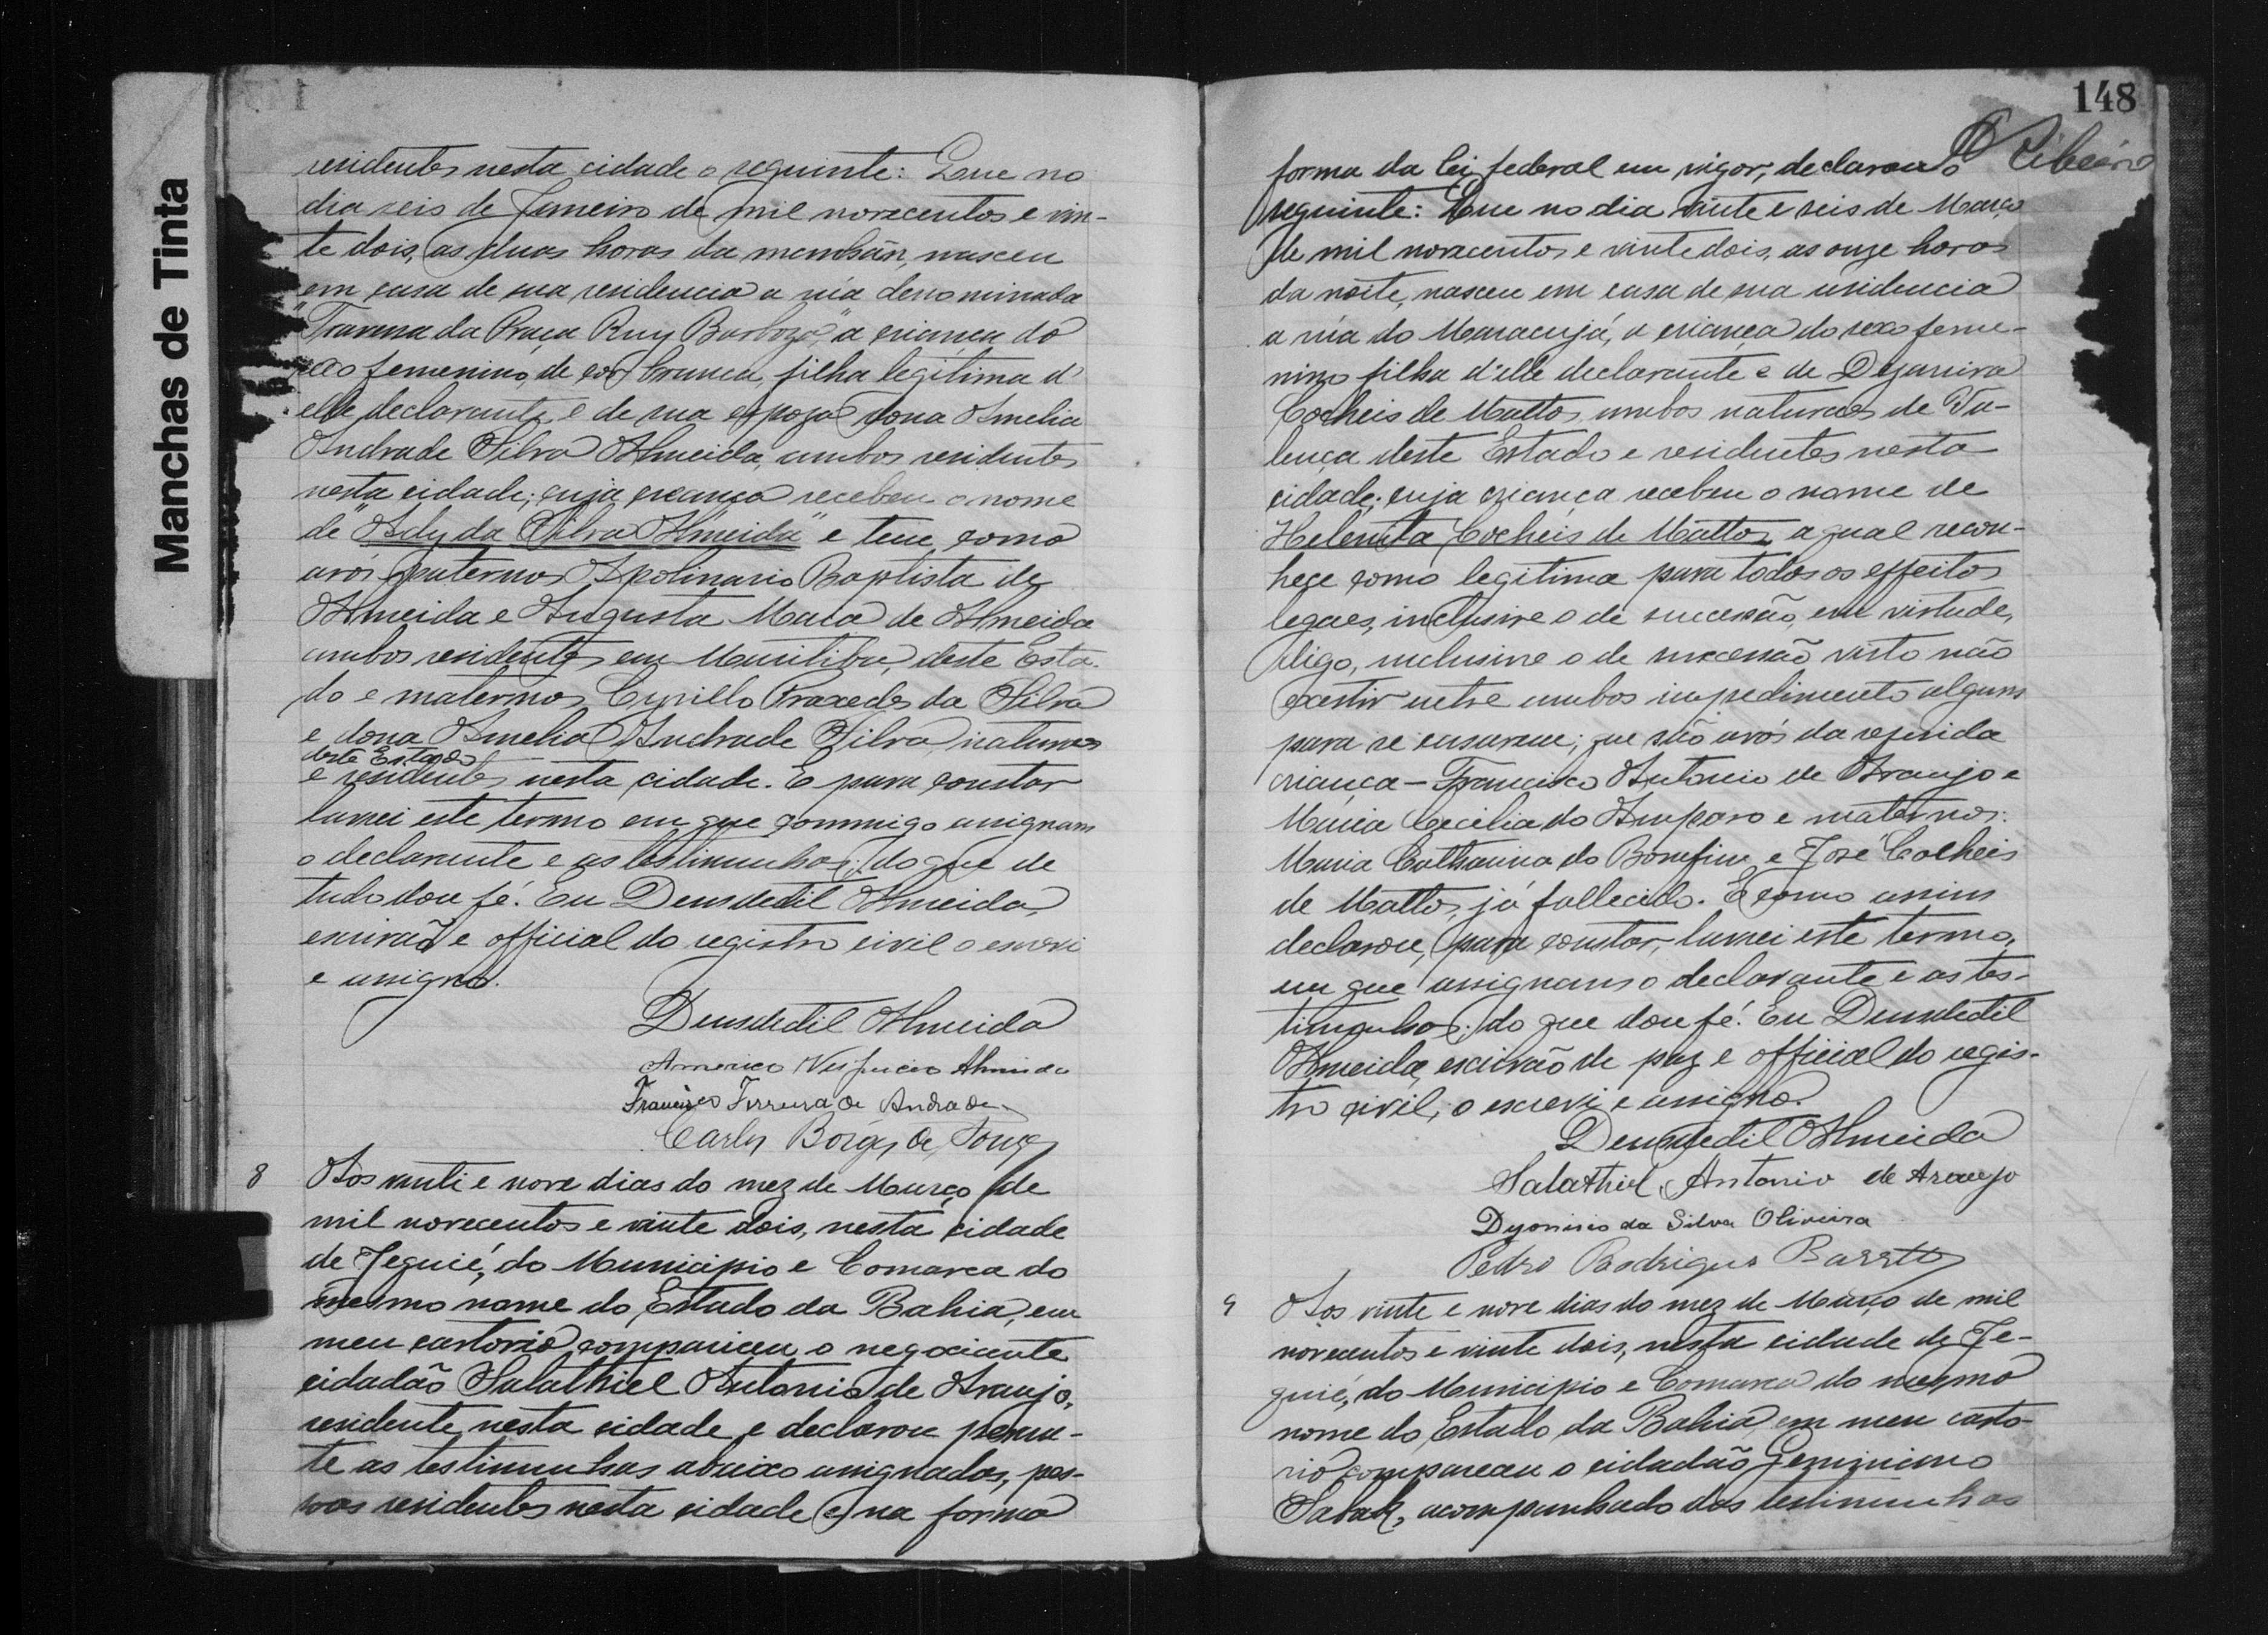 Manchas de Tinta
residentes nesta cidade o seguinte: Que no
dia seis de Janeiro de mil novecentos e vin-
te dois, as duas horas da manhãn, nasceu
em casa de sua residencia a rúa denominada
"Travessa da Praça Ruy Barboza", a criança do
sexo femenino, de cor branca, filha legitima d'
elle declarante e de sua espoza dona Amelia
Andrade Silva Almeida, ambos residentes
nesta cidade; cuja creança recebeu o nome
de "Ady da Silva Almeida" e teve como
avós paternos Apolinario Baptista de
Almeida e Augusta Maia de Almeida
ambos residentes em Maritiba, deste Esta-
do e maternos Cyrillo Praxedes da Silva
e dona Amelia Andrade Silva, naturaes
deste Estado
e residentes nesta cidade. E para constar
lavrei este termo em que commigo assignam
o declarante e as testimunhas; do que de
tudo dou fé. Eu Deusdedil Almeida,
escrivão e official do registro civil o escrevi
e assigno.
Deusdedil Almeida
Americo Vespucio Almeida
Francisco Ferreira de Andrade
Carlos Borges de Souza
8 Aos vinti e nove dias do mez de Março de
mil novecentos e vinte dois, nesta cidade
de Jequié, do Municipio e Comarca do
mesmo nome do Estado da Bahia, em
meu cartorio compareceu o negociante
cidadão Salathiel Antonio de Araujo,
residente nesta cidade e declarou peran-
te as testimunhas abaixo assignadas, pes-
soas residentes nesta cidade e na forma
148
Ribeiro
forma da lei federal em vigor, declarou o
seguinte: Que no dia vinte e seis de Março
de mil novecentos e vinte dois, as onze horas
da noite, nasceu em casa de sua residencia
a rúa do Maracujá, a criança do sexo feme-
nino filha d'elle declarante e de Dejanira
Cocheis de Mattos, ambos naturaes de Va-
lença deste Estado e residentes nesta
cidade; cuja criança recebeu o nome de
Helenita Cocheis de Mattos, a qual recon-
hece como legitima para todos os effeitos
legaes, inclusive o de sucessão, em virtude,
digo, inclusive o de sucessão visto não
existir entre ambos impedimento algum
para se casarem; que são avós da referida
criança - Francisco Antonio de Araujo e
Maria Cecilia do Amparo e maternos:
Maria Catharina do Bomfim e José Cocheis
de Mattos, já fallecido. E como assim
declarou, para constar, lavrei este termo,
em que assignam o declarante e as tes-
timunhas; do que dou fé. Eu Deusdedil
Almeida, escrivão de paz e official do regis-
tro civil, o escrevi e assigno.
Deusdedil Almeida
Salathiel Antonio de Araujo
Dyonisio da Silva Oliveira
Pedro Rodrigues Barretto
9 Aos vinte e nove dias do mez de Março de mil
novecentos e vinte dois, nesta cidade de Je-
quié, do Municipio e Comarca do mesmo
nome do Estado da Bahia, em meu carto-
rio compareceu o cidadão Geminiano
Sabak, acompanhado das testimunhas